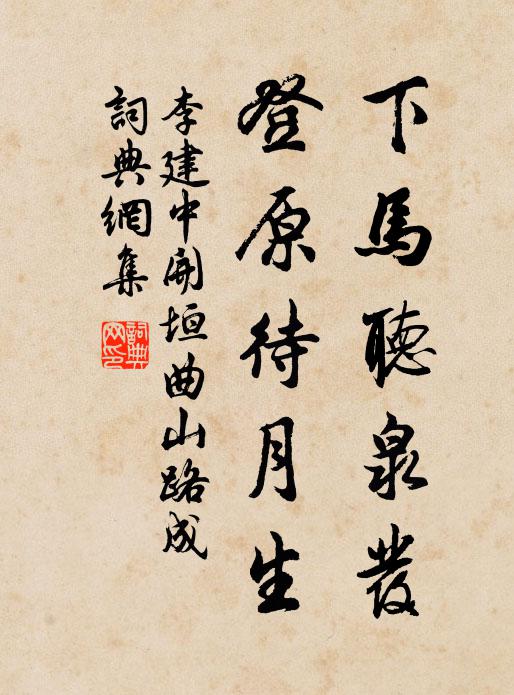 下馬聽泉發
登原待月生
李建中開垣曲山路成
詞典網集
詞典
网印